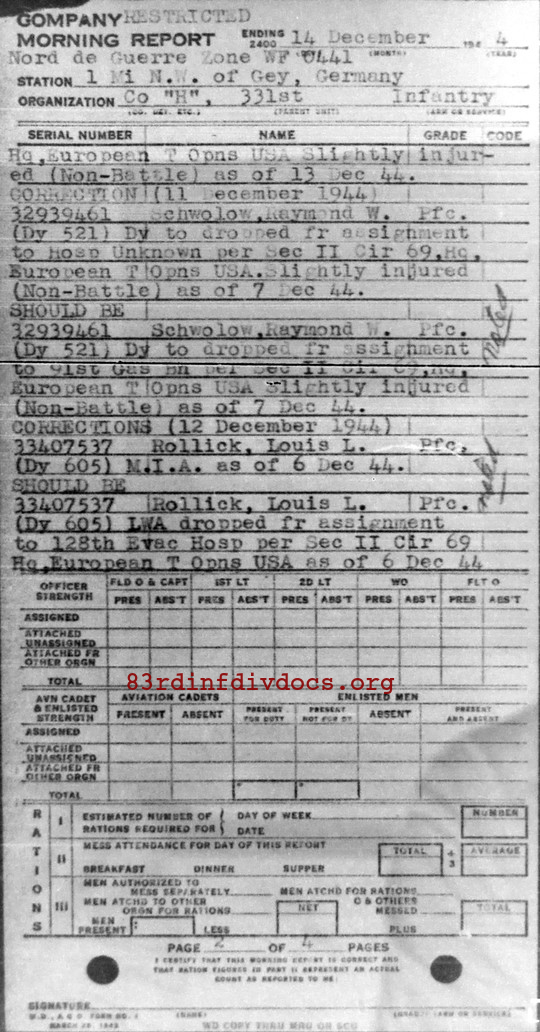 COMPANY RESTRICTED
MORNING REPORT ENDING 2400 14 December 194 4
(DAY) (MONTH) (YEAR)
Nord de Guerre Zone WF 0441
STATION 1 Mi N.W. of Gey, Germany
ORGANIZATION Co "H", 331st Infantry
(CO. DET. ETC.) (PARENT UNIT) (ARM OR SERVICE)
SERIAL NUMBER NAME GRADE CODE
Hq,European T Opns USA Slightly injur-
ed (Non-Battle) as of 13 Dec 44.
CORRECTION (11 December 1944)
32939461 Schwolow,Raymond W. Pfc.
(Dy 521) Dy to dropped fr assignment
to Hosp Unknown per Sec II Cir 69,Hq,
European T Opns USA.Slightly injured
(Non-Battle) as of 7 Dec 44.
SHOULD BE
32939461 Schwolow,Raymond W. Pfc.
(Dy 521) Dy to dropped fr assignment
to 91st Gas Bn per Sec II Cir 69,Hq,
European T Opns USA Slightly injured
(Non-Battle) as of 7 Dec 44.
CORRECTIONS (12 December 1944)
33407537 Rollick, Louis L. Pfc,
(Dy 605) M.I.A. as of 6 Dec 44.
SHOULD BE
33407537 Rollick, Louis L. Pfc.
(Dy 605) LWA dropped fr assignment
to 128th Evac Hosp per Sec II Cir 69
Hq,European T Opns USA as of 6 Dec 44
OFFICER STRENGTH FLD O & CAPT 1ST LT 2D LT WO FLT O
PRES ABS'T PRES ABS'T PRES ABS'T PRES ABS'T PRES ABS'T
ASSIGNED
ATTACHED UNASSIGNED
ATTACHED FR OTHER ORGN
TOTAL
83rdinfdivdocs.org
AVN CADET & ENLISTED STRENGTH AVIATION CADETS ENLISTED MEN
PRESENT ABSENT PRESENT FOR DUTY PRESENT NOT FOR DY ABSENT PRESENT AND ABSENT
ASSIGNED
ATTACHED UNASSIGNED
ATTACHED FR OTHER ORGN
TOTAL
RATIONS
I ESTIMATED NUMBER OF RATIONS REQUIRED FOR DAY OF WEEK DATE NUMBER
II MESS ATTENDANCE FOR DAY OF THIS REPORT TOTAL ÷ 3 AVERAGE
BREAKFAST DINNER SUPPER
III MEN AUTHORIZED TO MESS SEPARATELY MEN ATCHD FOR RATIONS
MEN ATCHD TO OTHER ORGN FOR RATIONS NET & OTHERS MESSED TOTAL
MEN PRESENT LESS PLUS
PAGE 2 OF 4 PAGES
I CERTIFY THAT THIS MORNING REPORT IS CORRECT AND
THAT RATION FIGURES IN PART II REPRESENT AN ACTUAL
COUNT AS REPORTED TO ME:
SIGNATURE
W.D., A G O FORM NO. 1 (NAME) (GRADE) (ARM OR SERVICE)
MARCH
WD COPY THRU MRU OR SCU